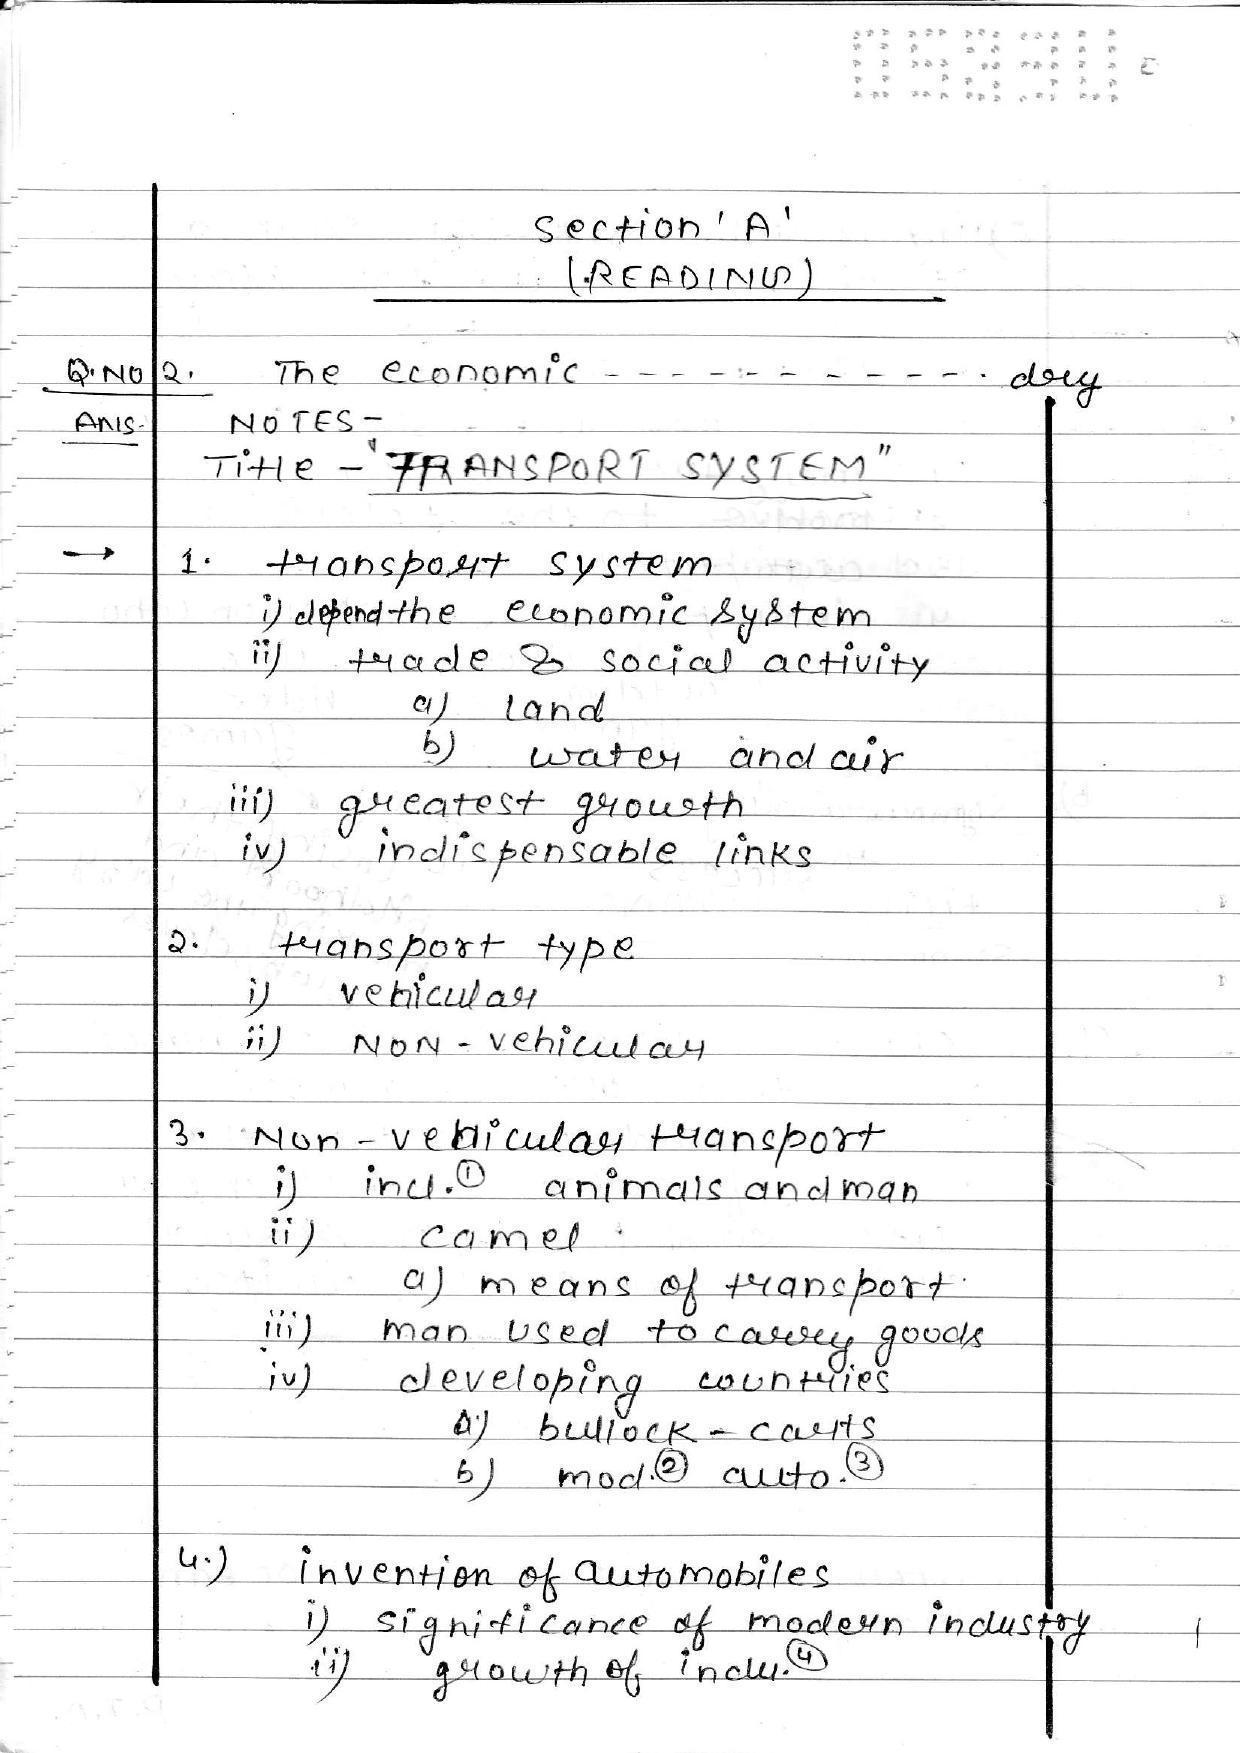 Section 'A'
(READING)
Q.NO 2. The economic - - - - - - - - - - - - . dry
Ans- NOTES -
Title - "TRANSPORT SYSTEM"
→ 1. transport system
i) depend the economic system
ii) trade & social activity
a) land
b) water and air
iii) greatest growth
iv) indispensable links
2. transport type
i) vehicular
ii) NON - vehicular
3. Non - vehicular transport
i) incl.① animals and man
ii) camel
a) means of transport.
iii) man used to carry goods
iv) developing countries
a) bullock - carts
b) mod.② auto.③
4.) invention of automobiles
i) significance of modern industry
ii) growth of indu.④